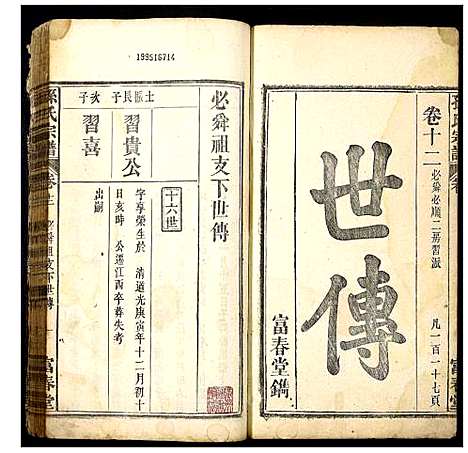 孫氏宗譜
卷十二
必舜必順二房習派
世傳
凡一百一十七頁
富春堂鐫
富春堂
199516714
必舜祖支下世傳
十六世
士賑長子
習貴公
字享榮生於 清道光庚寅年十二月初十
日亥時 公遷江西卒葬失考
次子
習喜
出嗣
孫氏宗譜
卷十二
必舜祖支下世傳
一
富春堂